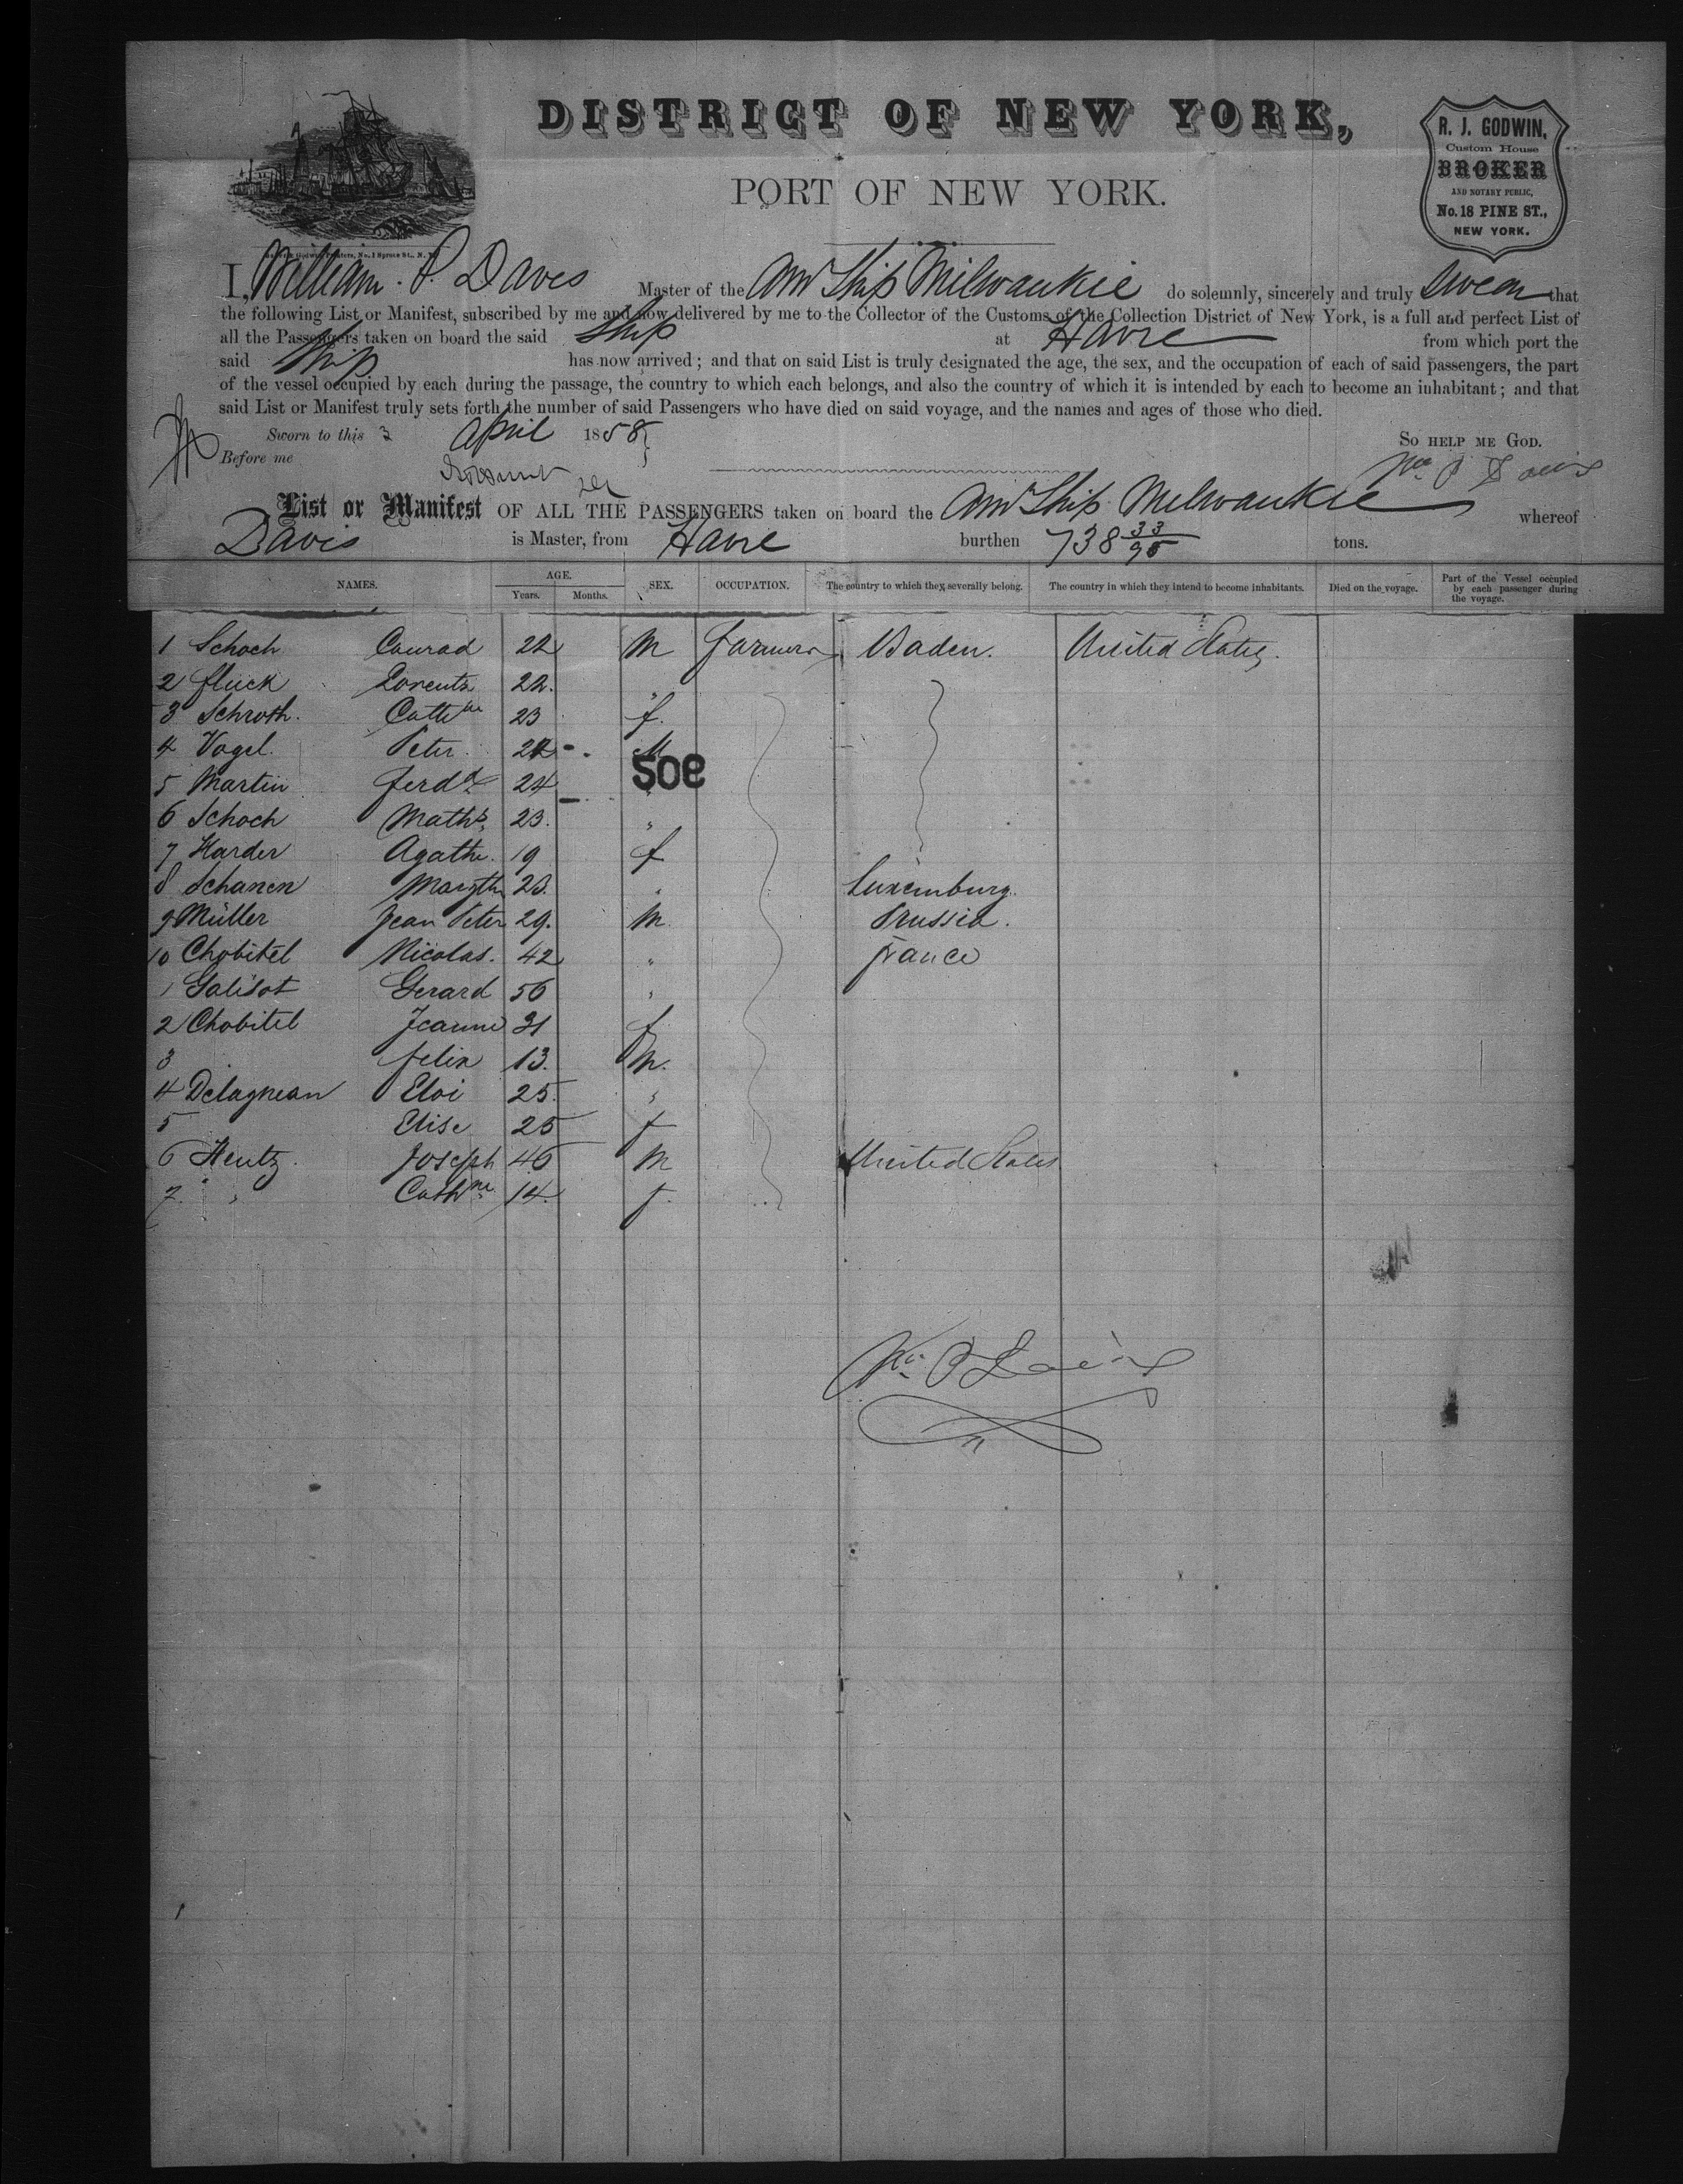 DISTRICT OF NEW YORK,
PORT OF NEW YORK.
R. J. GODWIN,
Custom House
BROKER
AND NOTARY PUBLIC,
No. 18 PINE ST.,
NEW YORK.
Godwin, Printers, No. 1 Spruce St., N. Y.
I, William. P. Davis Master of the Amn Ship Milwaukie do solemnly, sincerely and truly swear that
the following List or Manifest, subscribed by me and now delivered by me to the Collector of the Customs of the Collection District of New York, is a full and perfect List of
all the Passengers taken on board the said Ship at Havre from which port the
said Ship has now arrived; and that on said List is truly designated the age, the sex, and the occupation of each of said passengers, the part
of the vessel occupied by each during the passage, the country to which each belongs, and also the country of which it is intended by each to become an inhabitant; and that
said List or Manifest truly sets forth the number of said Passengers who have died on said voyage, and the names and ages of those who died.
Sworn to this 3 April 1858 So HELP ME GOD.
Before me Wm P Davis
List or Manifest OF ALL THE PASSENGERS taken on board the Amn Ship Milwaukie whereof
Davis is Master, from Havre burthen 738 33/95 tons.
NAMES. AGE. Years. Months. SEX. OCCUPATION. The country to which they severally belong. The country in which they intend to become inhabitants. Died on the voyage. Part of the Vessel occupied by each passenger during the voyage.
1 Schoch Conrad 22 M Farmers Baden. United States.
2 Fluck Lorentz 22. "
3 Schroth. Cathne 23 f.
4 Vogel. Peter 22 M
5 Martin Ferdd 24 "
6 Schoch Maths. 23. "
7 Harder Agathe. 19 f
8 Schanen Margth 23. " Luxemburg.
9 Müller Jean Peter 29. M Prussia.
10 Chobitel Nicolas. 42 " France
1 Galisot Gerard 56 "
2 Chobitel Jeanne 31 f
3 Felix 13. M.
4 Delagnean Eloi 25. "
5 Elise 25 f
6 Hentz. Joseph 46 M United States
7. " Cathne 14. f.
308
Wm P Davis